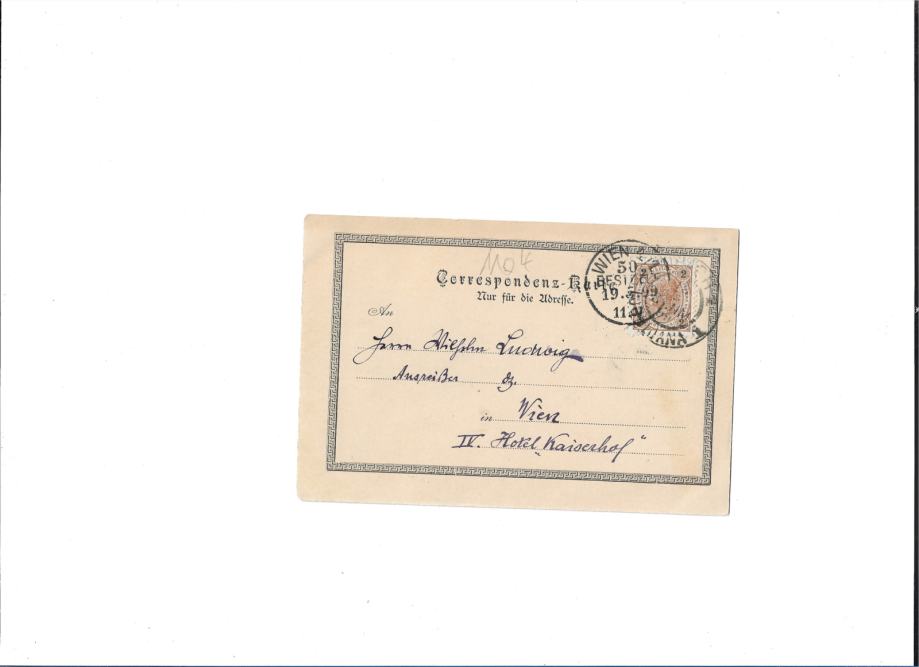 1104
Correspondenz-Karte
Nur für die Adresse.
An
Herrn Wilhelm Ludwig
Ausreißer
in Wien
IV. Hotel „Kaiserhof"
WIEN 4/1
50
BESTELLT
19.
11.V
2